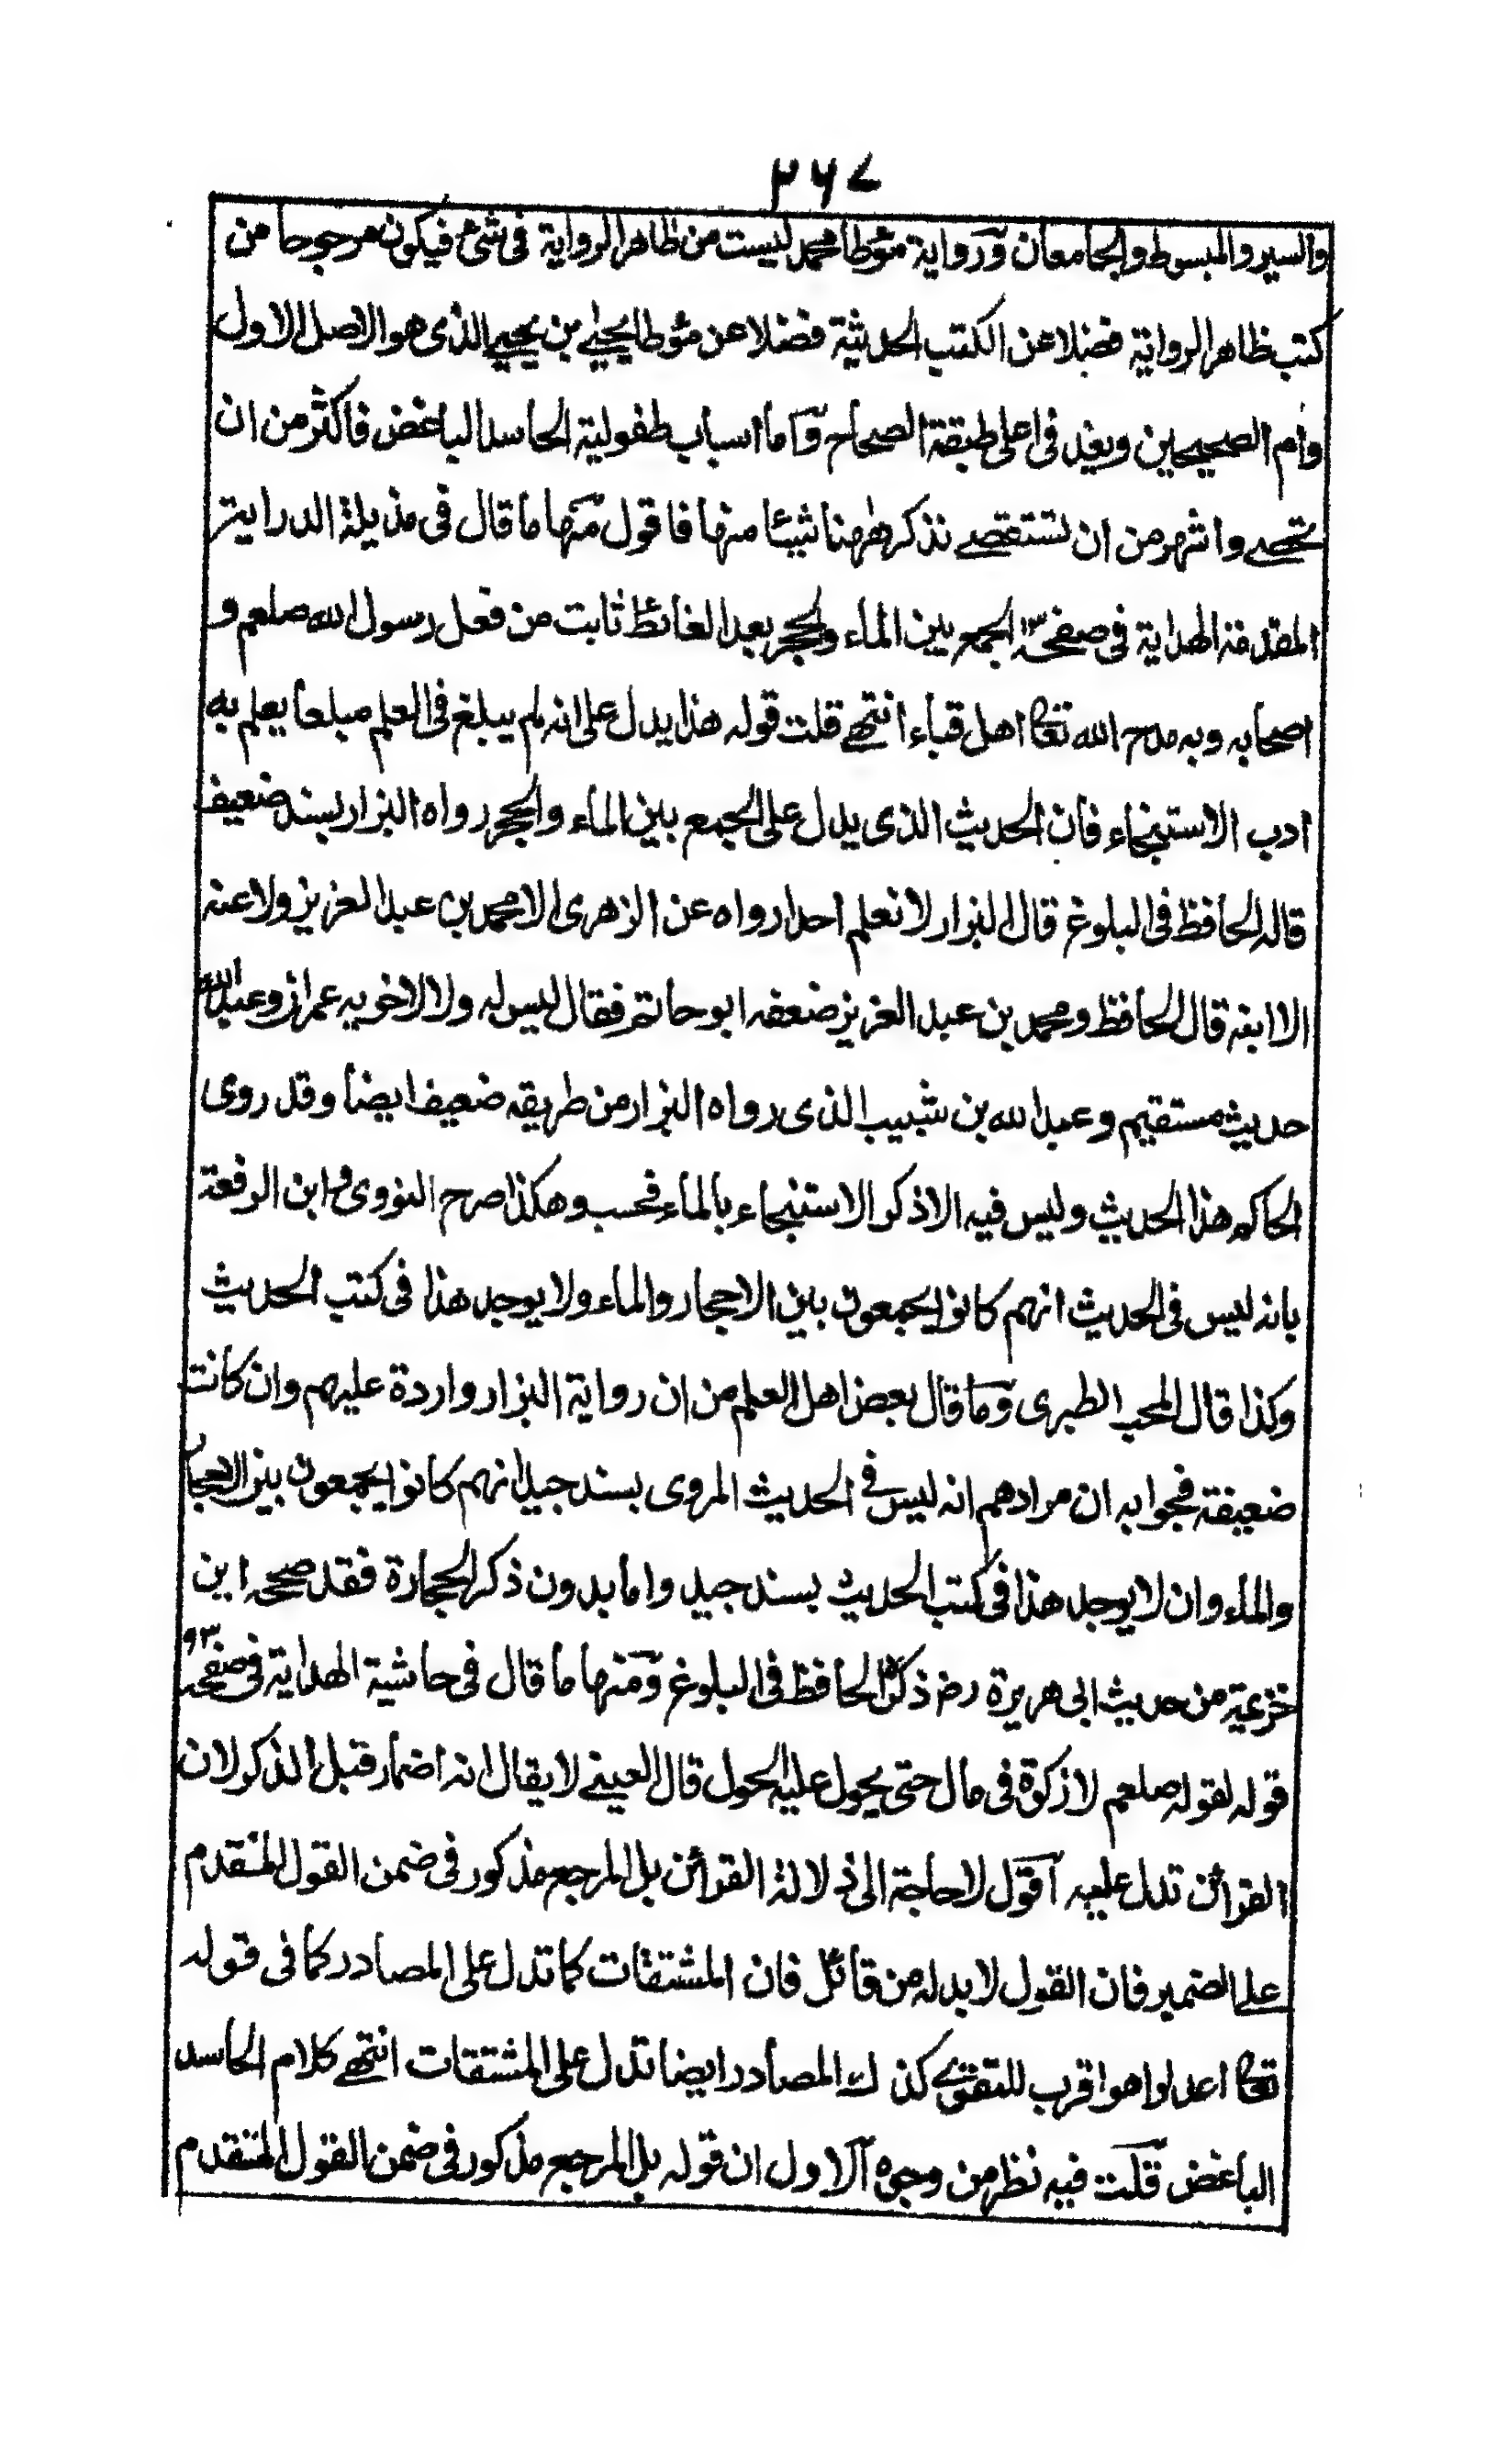 ۲۶۷
والسير والمبسوط والجامعان ورواية مؤطا محمد ليست من ظاهر الرواية فى شئ فيكون مرجوحا من
كتب ظاهر الرواية فضلا عن الكتب الحديثية فضلا عن مؤطا يحيٰي بن يحيي الذى هو الاصل الاول
وام الصحيحين ويعد فى اعلى طبقة الصحاح واما اسباب طفولية الحاسد الباغض فاكثر من ان
تحصے واشهر من ان تستقصے نذكر ههنا شيئا منها فاقول منها ما قال فى مذيلة الدراية
المقدمة الهداية فى صفحة الجمع بين الماء والحجر بعد الغائط ثابت من فعل رسول الله صلعم و
اصحابه وبه مدح الله تعا اهل قباء انتهے قلت قوله هذا يدل على انه لم يبلغ فى العلم مبلغا يعلم به
ادب الاستنجاء فان الحديث الذى يدل على الجمع بين الماء والحجر رواه البزار بسند ضعيف
قاله الحافظ فى البلوغ قال البزار لا نعلم احدا رواه عن الزهرى الا محمد بن عبد العزيز ولا عنه
الا ابنه قال الحافظ ومحمد بن عبد العزيز ضعفه ابو حاتم فقال ليس له ولا لاخويه عمران وعبد الله
حديث مستقيم وعبد الله بن شبيب الذى رواه البزار من طريقه ضعيف ايضا وقد روى
الحاكم هذا الحديث وليس فيه الا ذكر الاستنجاء بالماء فحسب وهكذا صرح النووى وابن الرفعة
بانه ليس فى الحديث انهم كانوا يجمعون بين الاحجار والماء ولا يوجد هذا فى كتب الحديث
وكذا قال المحب الطبرى وما قال بعض اهل العلم من ان رواية البزار واردة عليهم وان كانت
ضعيفة فجوابه ان مرادهم انه ليس فى الحديث المروى بسند جيد انهم كانوا يجمعون بين الاحجار
والماء وان لا يوجد هذا فى كتب الحديث بسند جيد واما بدون ذكر الحجارة فقد صححه ابن
خزيمة من حديث ابى هريرة رض ذكره الحافظ فى البلوغ ومنها ما قال فى حاشية الهداية فى صفحة
قوله لقوله صلعم لا زكوة فى مال حتى يحول عليه الحول قال العينے لا يقال انه اضمار قبل الذكر لان
القرائن تدل عليه اقول لا حاجة الى دلالة القرائن بل المرجع مذكور فى ضمن القول المتقدم
علے الضمير فان القول لا بد له من قائل فان المشتقات كما تدل على المصادر كما فى قوله
تعا اعدلوا هو اقرب للتقوے كذلك المصادر ايضا تدل على المشتقات انتهے كلام الحاسد
الباغض قلت فيه نظر من وجوه الاول ان قوله بل المرجع مذكور فى ضمن القول المتقدم